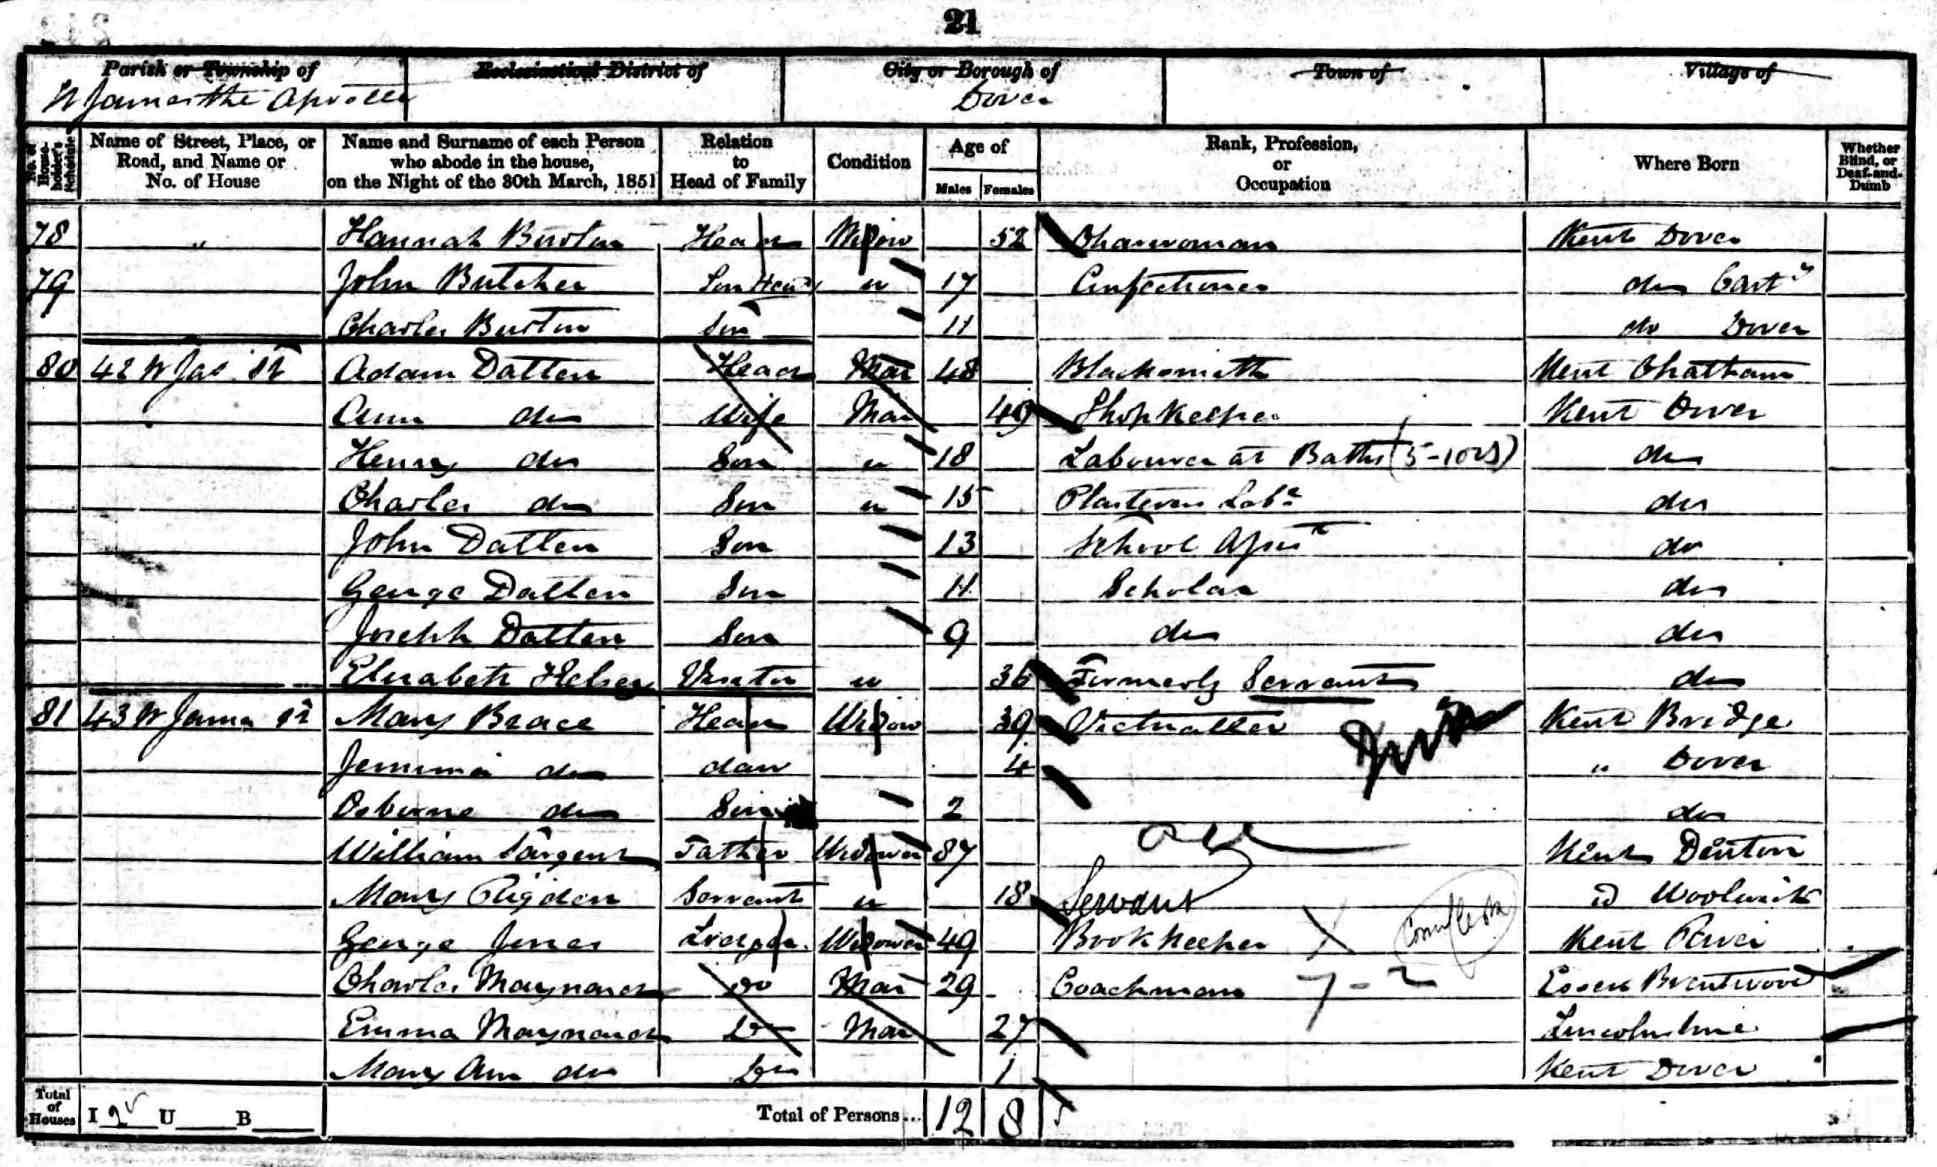 21
Parish or Township of Ecclesiastical District of City or Borough of Town of Village of
St James the Apostle Dover
No. of House-holder's Schedule Name of Street, Place, or Road, and Name or No. of House Name and Surname of each Person who abode in the house, on the Night of the 30th March, 1851 Relation to Head of Family Condition Age of Males Females Rank, Profession, or Occupation Where Born Whether Blind, or Deaf-and-Dumb
78 " Hannah Burton Head Widow 52 Charwoman Kent Dover
79 John Butcher Son Head u 17 Confectioner do
Charles Burton Son 11 do Dover
80 42 St Jas St Adam Datten Head Mar 48 Blacksmith Kent Chatham
Ann do Wife Mar 49 Shopkeeper Kent Dover
Henry do Son u 18 Labourer at Baths do
Charles do Son u 15 Plasterers Labr do
John Datten Son 13 School do
George Datten Son 11 Scholar do
Joseph Datten Son 9 do do
Elizabeth Helsey Visitor u 36 Formerly Servant do
81 43 St James St Mary Brace Head Widow 39 Victualler Kent Bridge
Jemima do daur 4 " Dover
Osborne do Son 2 do
William Sargent Father Widower 87 Kent Denton
Mary Rigden Servant u 18 Servant do Woolwich
George Jones Lodger Widower 49 Bookkeeper X Kent River
Charles Maynard Do Mar 29 Coachman 7-2 Essex Brentwood
Emma Maynard Do Mar 27 Lincolnshire
Mary Ann do Do 1 Kent Dover
Total of Houses I 2 U B Total of Persons... 12 8